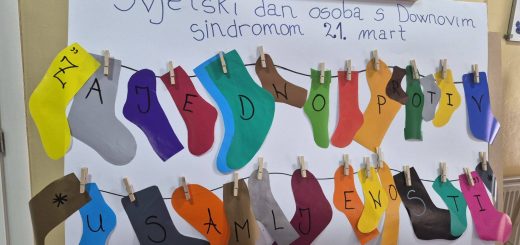 Svjetski dan osoba s Downovim
sindromom 21. mart
"ZAJEDNO PROTIV
* USAMLJENOSTI